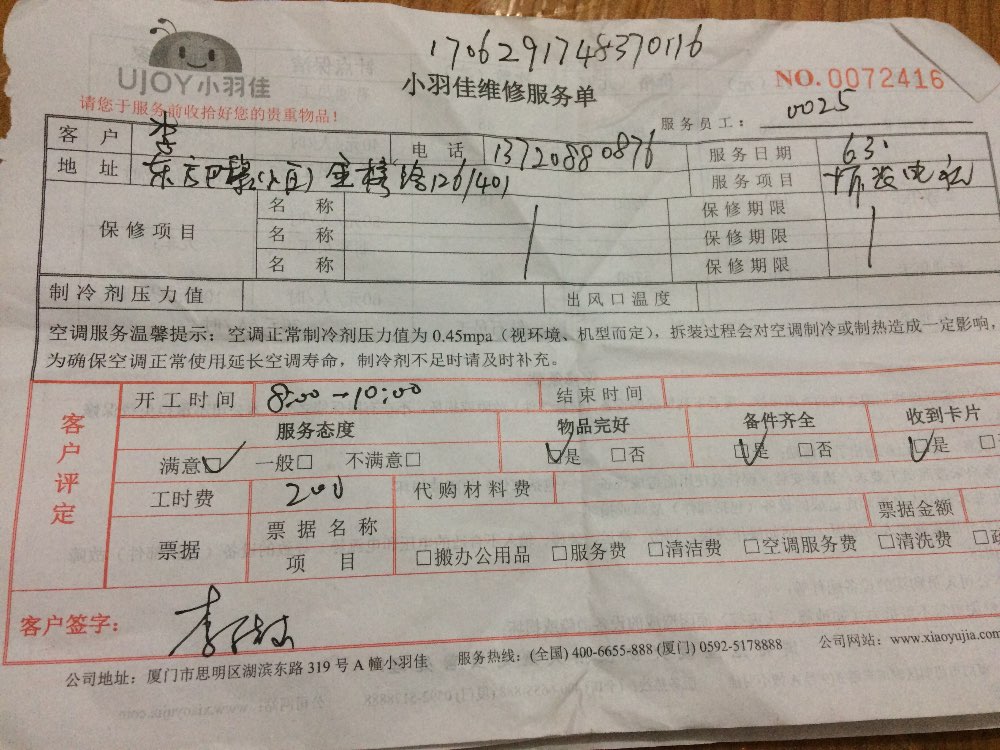 1706291748370116
UJOY小羽佳
小羽佳维修服务单
NO.0072416
请您于服务前收拾好您的贵重物品!
服务员工: 0025
客户 李 电话 13720880876 服务日期 6.30
地址 东方巴黎(小区)金榜路126/401 服务项目 拆装电视
保修项目 名称 保修期限
名称 保修期限
名称 保修期限
制冷剂压力值 出风口温度
空调服务温馨提示:空调正常制冷剂压力值为 0.45mpa(视环境、机型而定),拆装过程会对空调制冷或制热造成一定影响,
为确保空调正常使用延长空调寿命,制冷剂不足时请及时补充。
客户评定
开工时间 8:00-10:00 结束时间
服务态度 物品完好 备件齐全 收到卡片
满意☑ 一般□ 不满意□ ☑是 □否 ☑是 □否 ☑是 □
工时费 200 代购材料费
票据 票据名称 票据金额
项目 □搬办公用品 □服务费 □清洁费 □空调服务费 □清洗费 □
客户签字: 李
公司地址:厦门市思明区湖滨东路 319 号 A 幢小羽佳 服务热线:(全国) 400-6655-888 (厦门) 0592-5178888 公司网站:www.xiaoyujia.com